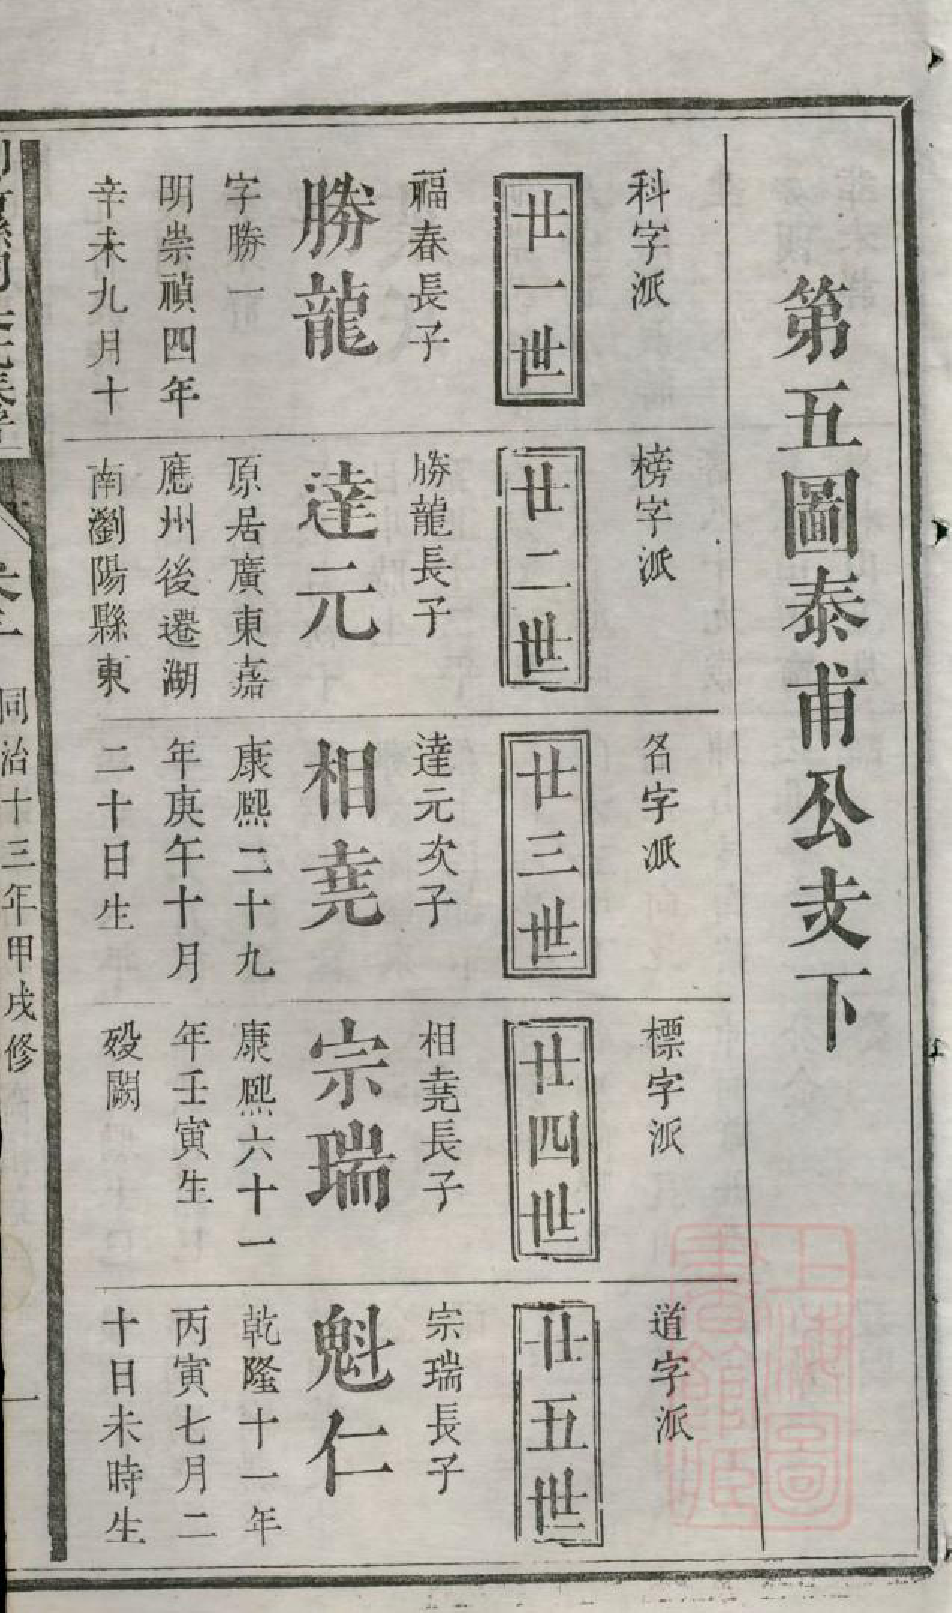 第五圖泰甫公支下
科字派
廿一世
福春長子
勝龍
字勝一
明崇禎四年
辛未九月十
榜字派
廿二世
勝龍長子
達元
原居廣東嘉
應州後遷湖
南瀏陽縣東
名字派
廿三世
達元次子
相堯
康熙二十九
年庚午十月
二十日生
標字派
廿四世
相堯長子
宗瑞
康熙六十一
年壬寅生
殁闕
道字派
廿五世
宗瑞長子
魁仁
乾隆十一年
丙寅七月二
十日未時生
同治十三年甲戌修
一
上海圖書館藏